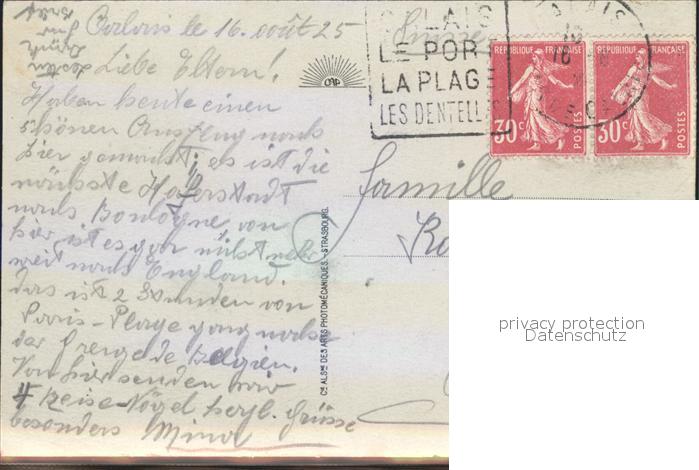 Calais le 16. août 25
Liebe Eltern!
Haben heute einen
schönen Ausflug nach
hier gemacht; es ist die
nächste Hafenstadt
nach Boulogne, von
hier ist es gar nicht mehr
weit nach England.
das ist 2 Stunden von
Paris-Plage ganz nahe
der Grenze de Belgien.
Von hier senden wir
4 Reise-Vögel herzl. Grüsse
besonders Mina
Suisse
CALAIS
LE PORT
LA PLAGE
LES DENTELLES
CALAIS
REPUBLIQUE FRANÇAISE
30c
POSTES
REPUBLIQUE FRANÇAISE
30c
POSTES
CAP
Famille
Cie ALSne DES ARTS PHOTOMÉCANIQUES. - STRASBOURG.
privacy protection
Datenschutz